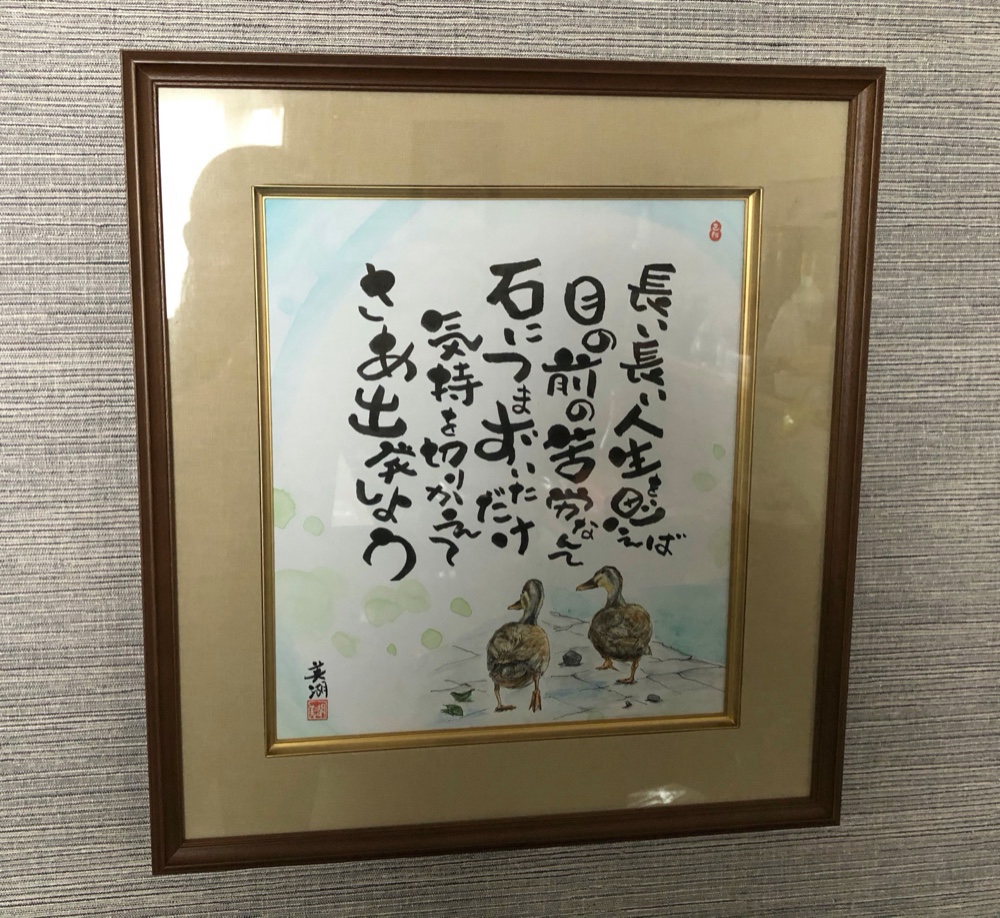 長い長い人生を思えば
目の前の苦労なんて
石につまずいただけ
気持を切りかえて
さあ出発しよう
英湖